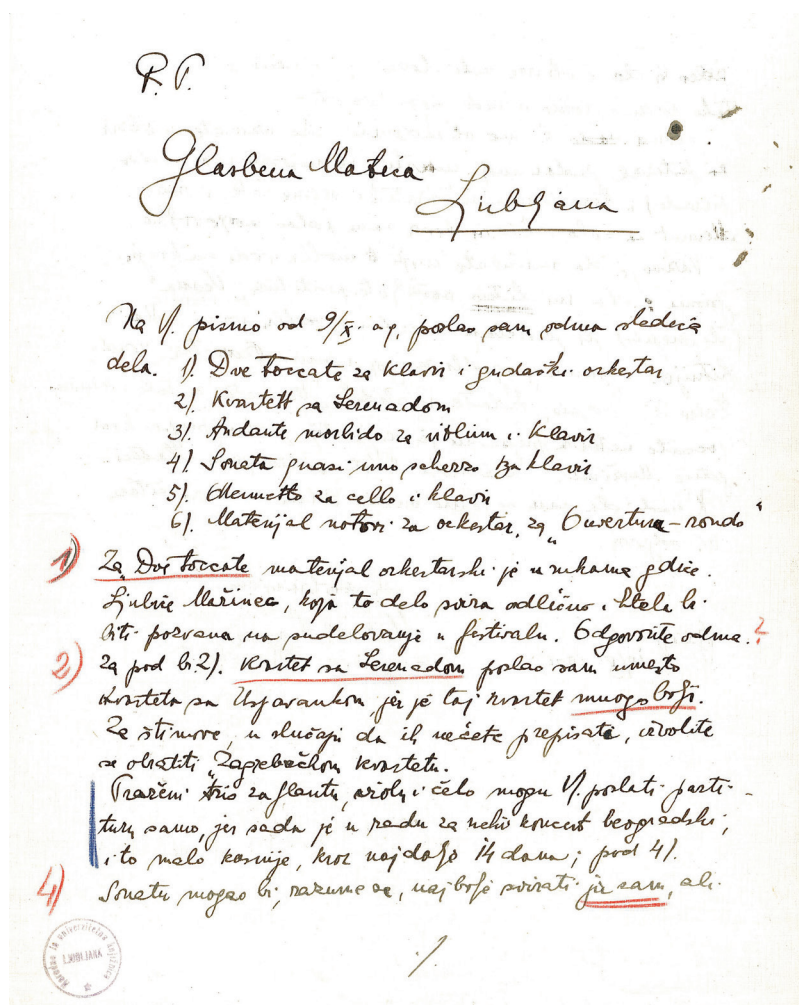 P. T.
Glasbena Matica
Ljubljana
Na V/. pismo od 9/X. o.g. poslao sam odma sledeća
dela. 1). Dve toccate za klavir i gudački orkestar
2). Kvartett sa Serenadom
3). Andante morbido za violinu i klavir
4). Sonata quasi uno scherzo za klavir
5). Menuetto za cello i klavir
6). Materijal notovi za orkestar, za „Ouvertura-rondo"
1) Za „Dve toccate materijal orkestarski je u rukama gdice.
Ljubice Mařinec, koja to delo svira odlično i htela bi
biti pozvana na sudelovanje u festivalu. Odgovorite odma. ?
2) Za pod br. 2). Kvartet sa Serenadom poslao sam umesto
kvarteta sa Uspavankom jer je taj kvartet mnogo bolji.
Za štimove, u slučaju da ih nećete prepisati, izvolite
se obratiti „Zagrebačkom kvartetu.
Traženi trio za flautu, violu i čelo mogu V/. poslati parti-
turu samo, jer sada je u radu za neki koncert beogradski,
i to malo kasnije, kroz najdalje 14 dana; pod 4/.
4) Sonatu mogao bi, razume se, najbolje svirati ja sam, ali
./.
Narodna in univerzitetna knjižnica
LJUBLJANA